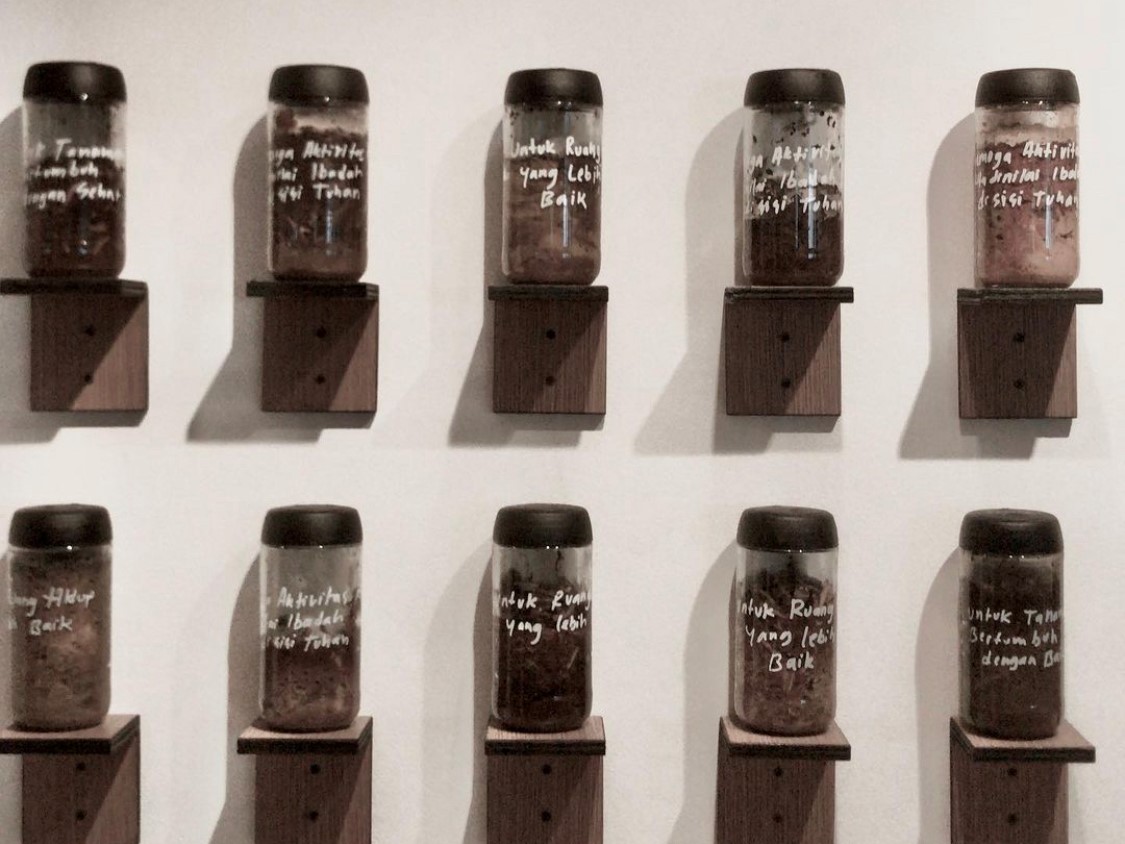 k Tanaman
rtumbuh
ngan Sehat
oga Aktivitas
ilai Ibadah
isisi Tuhan
Untuk Ruang
Yang Lebih
Baik
ga Aktivit
lai Ibadah
isisi Tuhan
moga Aktivita
adinilai Ibad
di sisi Tuhan
ang Hidup
h Baik
Aktivitas
ai Ibadah
isisi Tuhan
Untuk Ruang
yang lebih
Untuk Ruang
Yang lebih
Baik
Untuk Tana
Bertumbuh
dengan Ba